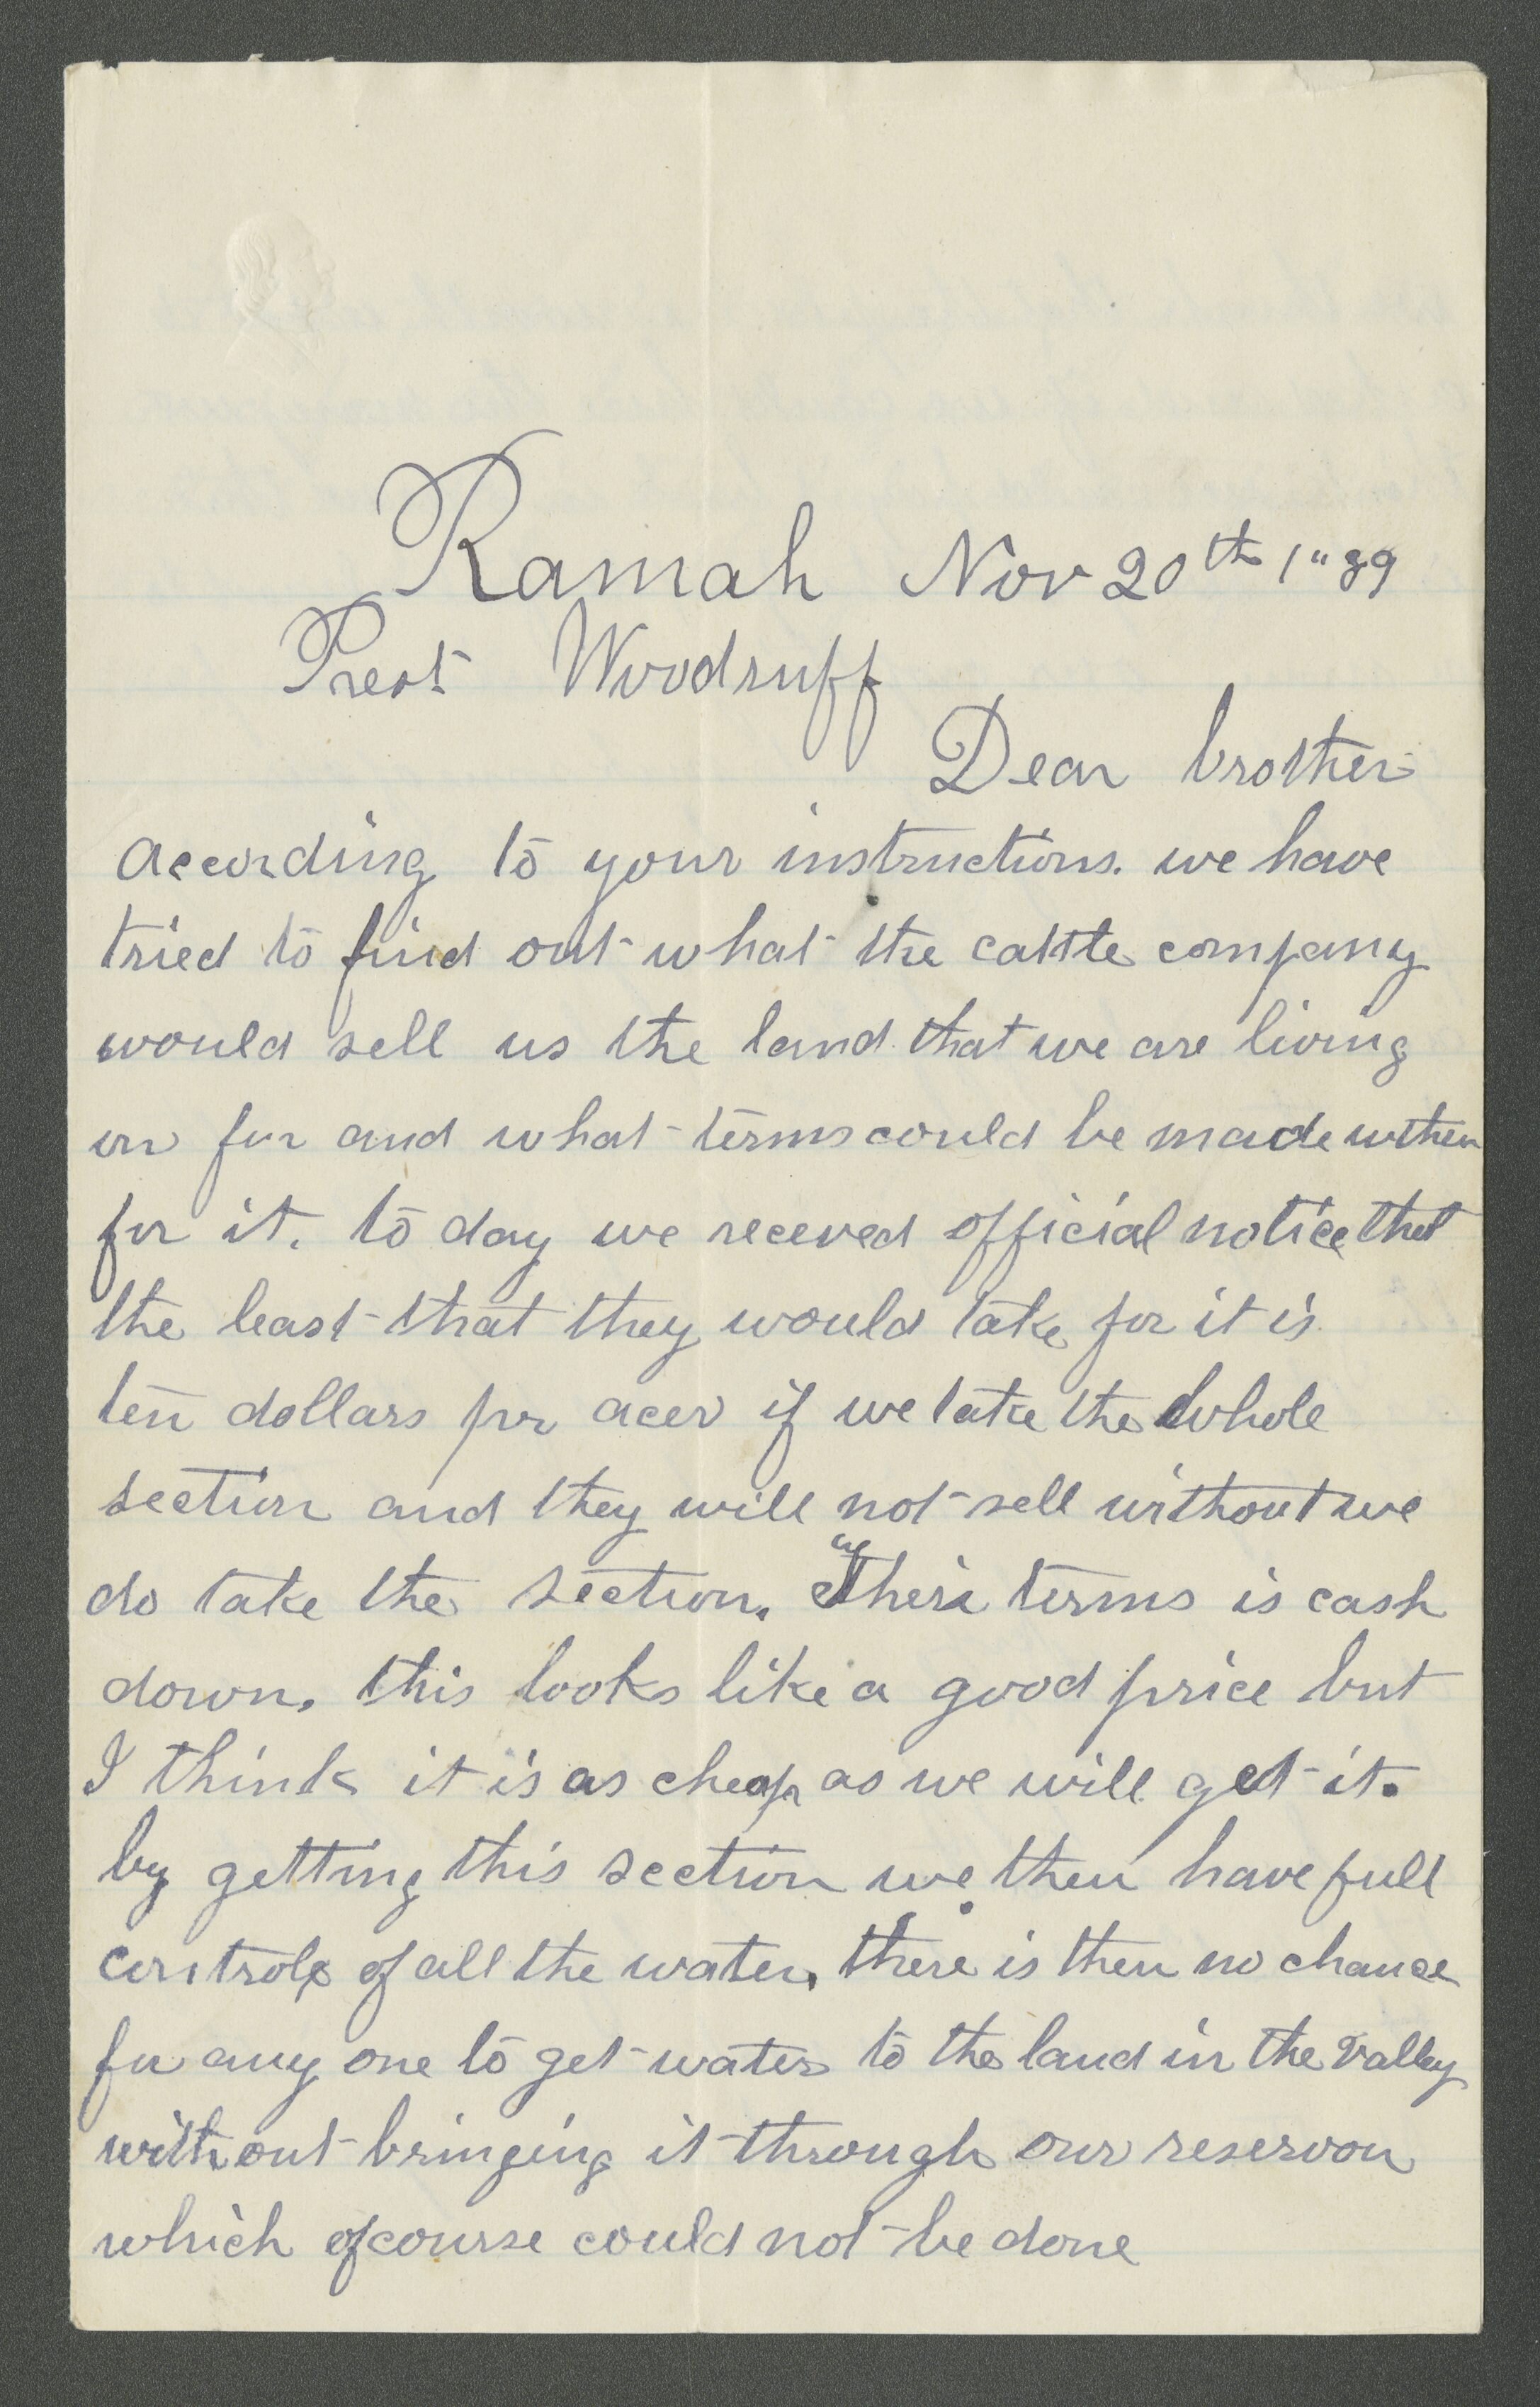 Ramah Nov 20th 1"89
Prest Woodruff
Dear brother
according to your instructions. we have
tried to find out what the cattle company
would sell us the land that we are living
on for and what terms could be made
for it. to day we receved official notice that
the least that they would take for it is
ten dollars per acer if we take the whole
section and they will not sell without we
do take the section. Their terms is cash
down. this looks like a good price but
I think it is as cheap as we will get it.
by getting this section we then have full
control of all the water, there is then no chance
for any one to get water to the land in the valley
without bringing it through our reservoir
which of course could not be done